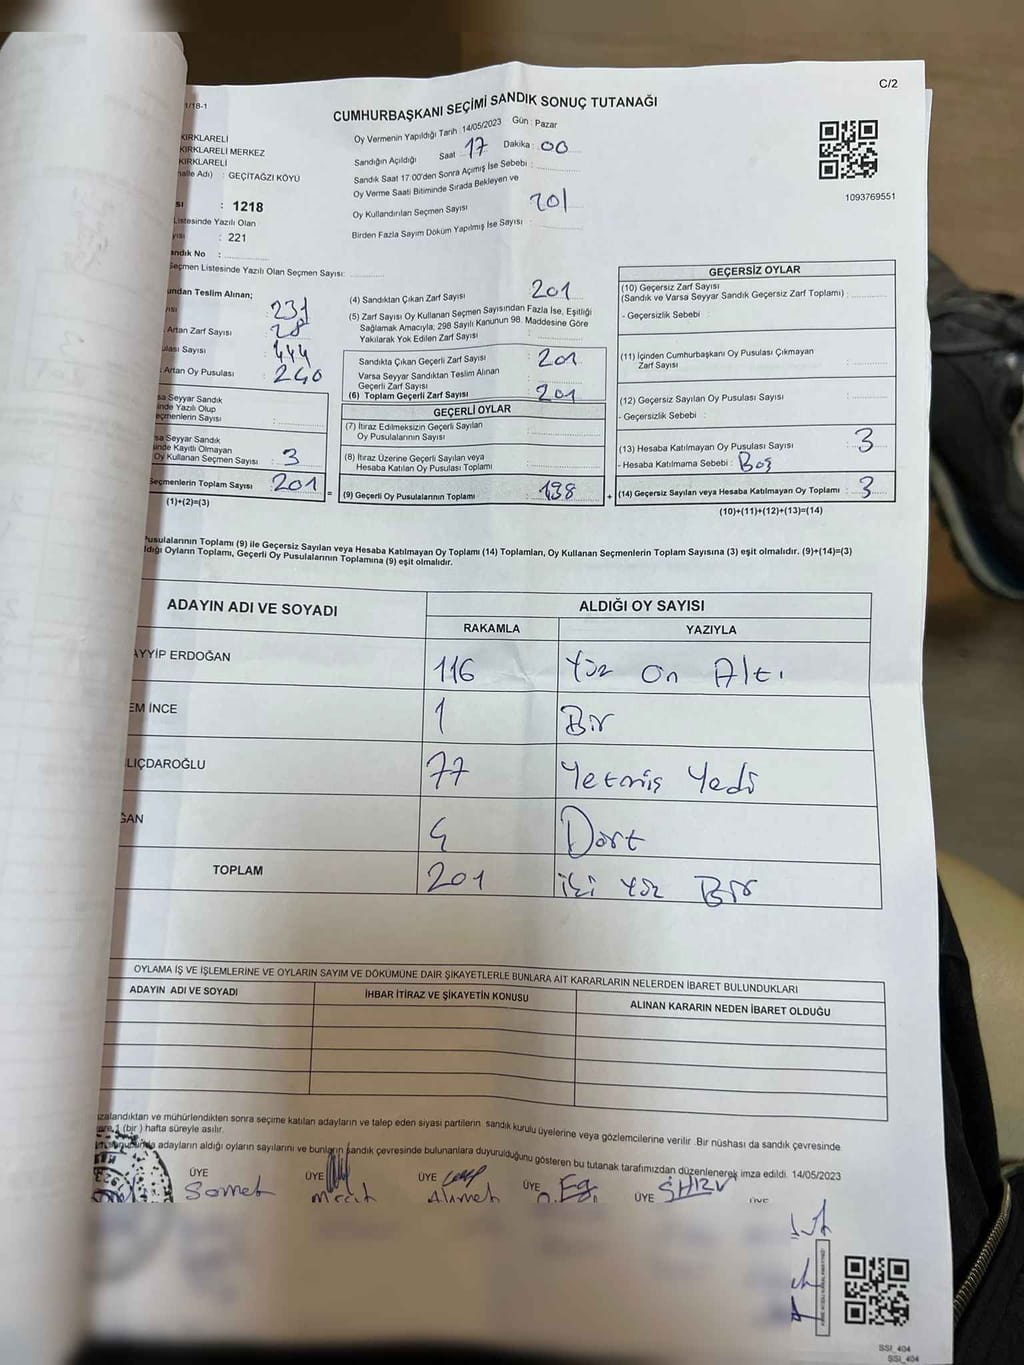 C/2
1/18-1
CUMHURBAŞKANI SEÇİMİ SANDIK SONUÇ TUTANAĞI
KIRKLARELİ
KIRKLARELİ MERKEZ
KIRKLARELİ
halle Adı) : GEÇİTAĞZI KÖYÜ
: 1218
Listesinde Yazılı Olan
: 221
andık No :
Seçmen Listesinde Yazılı Olan Seçmen Sayısı:
Oy Vermenin Yapıldığı Tarih : 14/05/2023 Gün : Pazar
Sandığın Açıldığı Saat : 17 Dakika : 00
Sandık Saat 17:00'den Sonra Açılmış İse Sebebi :
Oy Verme Saati Bitiminde Sırada Bekleyen ve
Oy Kullandırılan Seçmen Sayısı 201
Birden Fazla Sayım Döküm Yapılmış İse Sayısı :
1093769551
undan Teslim Alınan;
231
Artan Zarf Sayısı : 28
Sayısı : 444
Artan Oy Pusulası : 240
sa Seyyar Sandık
inde Yazılı Olup
eçmenlerin Sayısı :
sa Seyyar Sandık
inde Kayıtlı Olmayan
Oy Kullanan Seçmen Sayısı : 3
Seçmenlerin Toplam Sayısı : 201
(1)+(2)=(3)
(4) Sandıktan Çıkan Zarf Sayısı : 201
(5) Zarf Sayısı Oy Kullanan Seçmen Sayısından Fazla İse, Eşitliği
Sağlamak Amacıyla; 298 Sayılı Kanunun 98. Maddesine Göre
Yakılarak Yok Edilen Zarf Sayısı :
Sandıkta Çıkan Geçerli Zarf Sayısı : 201
Varsa Seyyar Sandıktan Teslim Alınan
Geçerli Zarf Sayısı :
(6) Toplam Geçerli Zarf Sayısı : 201
GEÇERLİ OYLAR
(7) İtiraz Edilmeksizin Geçerli Sayılan
Oy Pusulalarının Sayısı :
(8) İtiraz Üzerine Geçerli Sayılan veya
Hesaba Katılan Oy Pusulası Toplamı :
= (9) Geçerli Oy Pusulalarının Toplamı : 198 +
GEÇERSİZ OYLAR
(10) Geçersiz Zarf Sayısı
(Sandık ve Varsa Seyyar Sandık Geçersiz Zarf Toplamı) :
- Geçersizlik Sebebi :
(11) İçinden Cumhurbaşkanı Oy Pusulası Çıkmayan
Zarf Sayısı :
(12) Geçersiz Sayılan Oy Pusulası Sayısı :
- Geçersizlik Sebebi :
(13) Hesaba Katılmayan Oy Pusulası Sayısı : 3
- Hesaba Katılmama Sebebi : Boş
(14) Geçersiz Sayılan veya Hesaba Katılmayan Oy Toplamı : 3
(10)+(11)+(12)+(13)=(14)
Pusulalarının Toplamı (9) ile Geçersiz Sayılan veya Hesaba Katılmayan Oy Toplamı (14) Toplamları, Oy Kullanan Seçmenlerin Toplam Sayısına (3) eşit olmalıdır. (9)+(14)=(3)
ldığı Oyların Toplamı, Geçerli Oy Pusulalarının Toplamına (9) eşit olmalıdır.
ADAYIN ADI VE SOYADI ALDIĞI OY SAYISI
RAKAMLA YAZIYLA
AYYİP ERDOĞAN 116 Yüz On Altı
EM İNCE 1 Bir
LIÇDAROĞLU 77 Yetmiş Yedi
ĞAN 4 Dört
TOPLAM 201 İki Yüz Bir
OYLAMA İŞ VE İŞLEMLERİNE VE OYLARIN SAYIM VE DÖKÜMÜNE DAİR ŞİKAYETLERLE BUNLARA AİT KARARLARIN NELERDEN İBARET BULUNDUKLARI
ADAYIN ADI VE SOYADI İHBAR İTİRAZ VE ŞİKAYETİN KONUSU ALINAN KARARIN NEDEN İBARET OLDUĞU
zalandıktan ve mühürlendikten sonra seçime katılan adayların ve talep eden siyasi partilerin sandık kurulu üyelerine veya gözlemcilerine verilir .Bir nüshası da sandık çevresinde
1 (bir ) hafta süreyle asılır.
adayların aldığı oyların sayılarını ve bunların sandık çevresinde bulunanlara duyurulduğunu gösteren bu tutanak tarafımızdan düzenlenerek imza edildi. 14/05/2023
ÜYE ÜYE ÜYE ÜYE ÜYE ÜYE
SSI_404
SSI_404